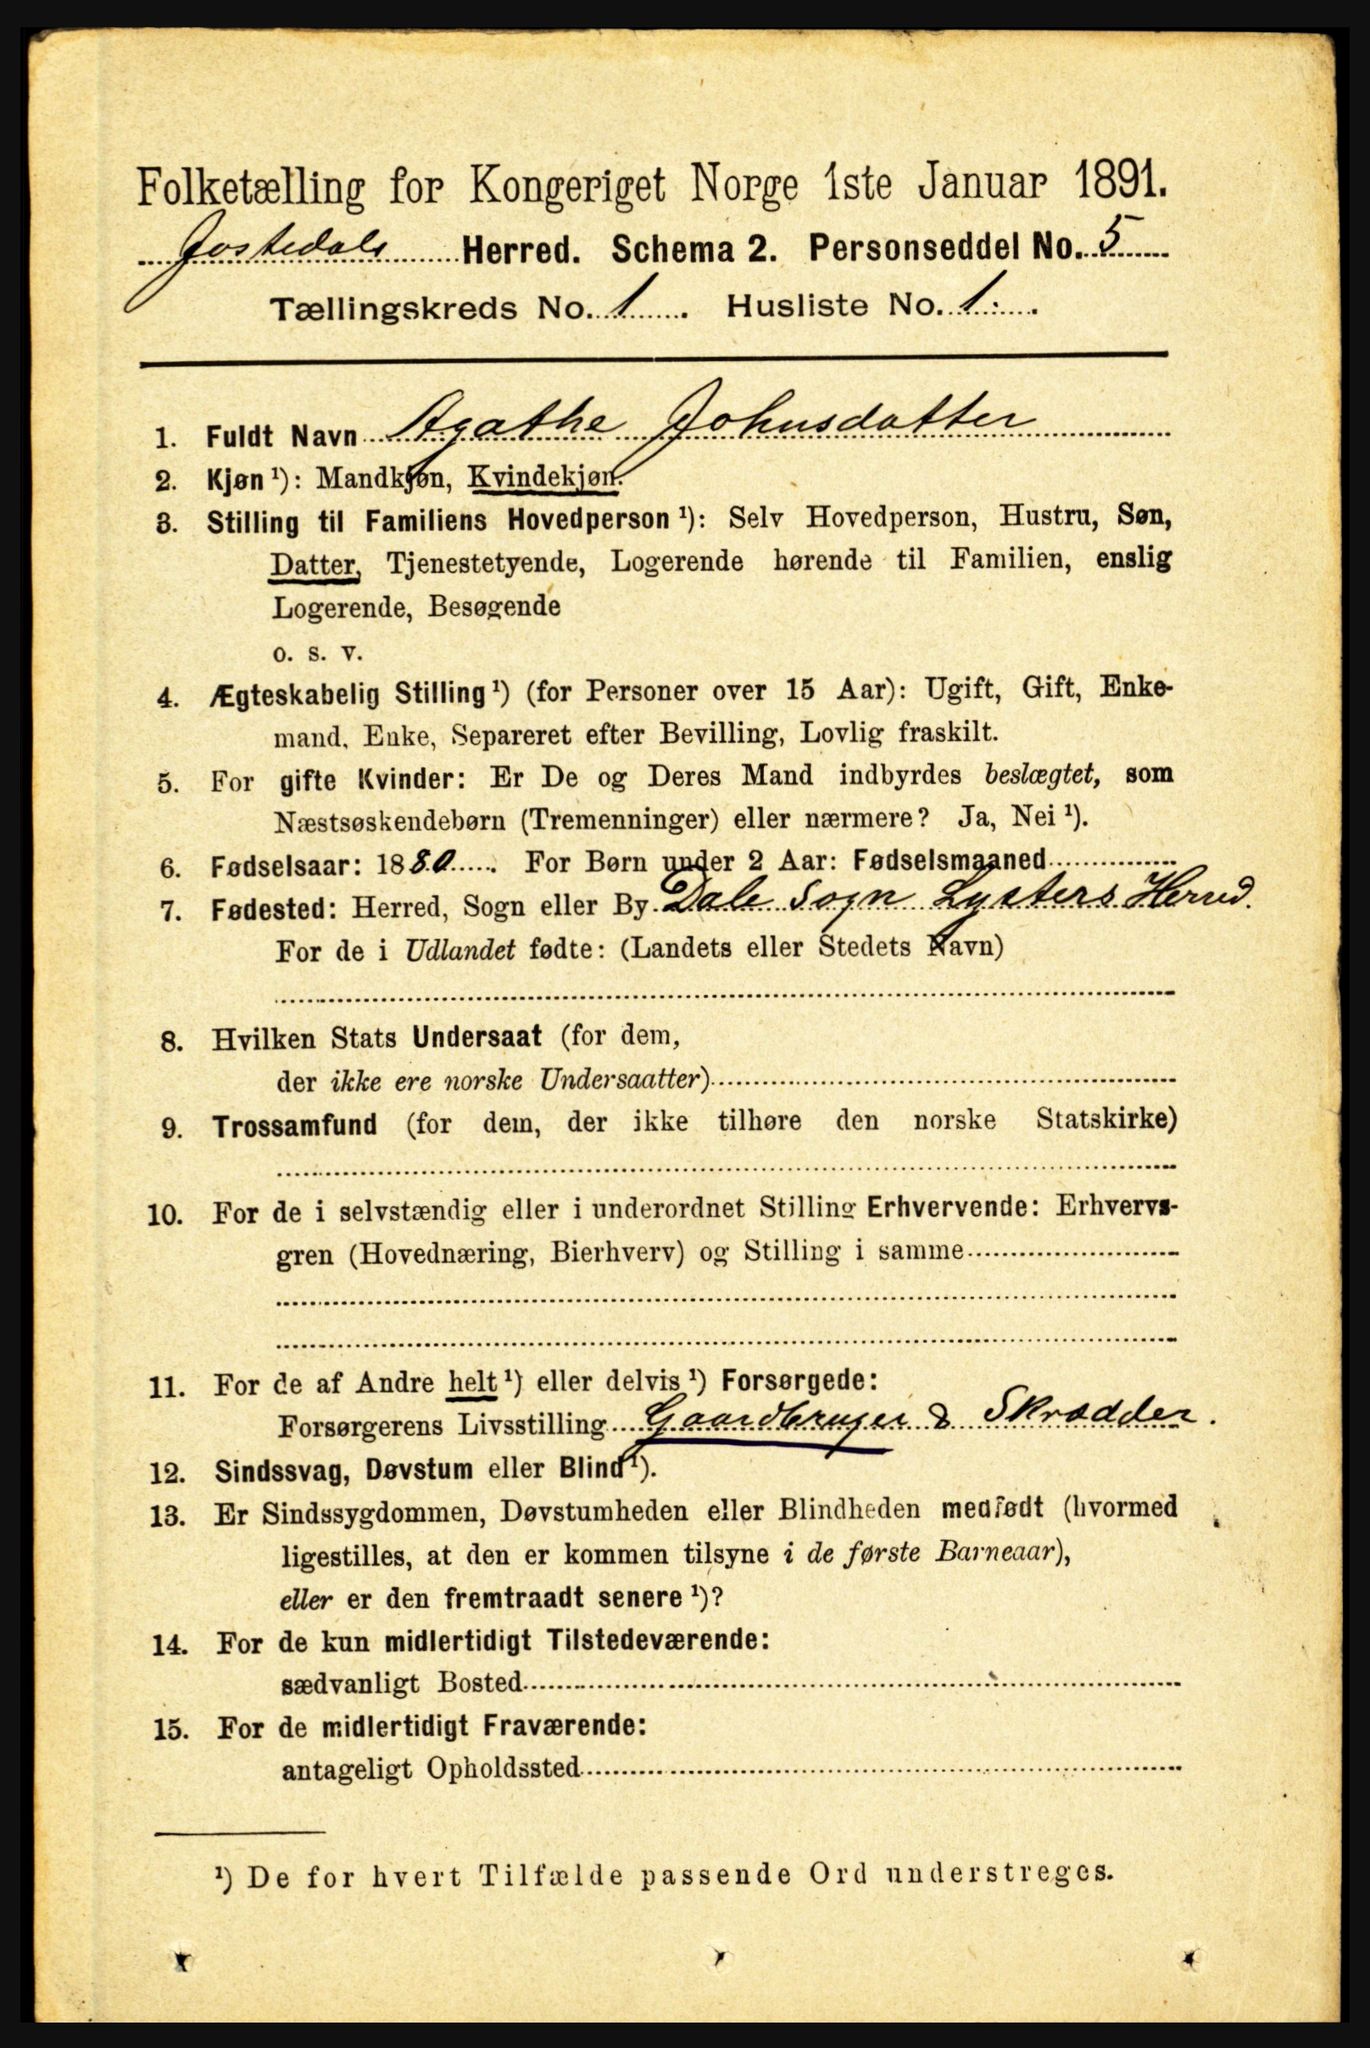 Folketælling for Kongeriget Norge 1ste Januar 1891.
Jostedals Herred. Schema 2. Personseddel No. 5
Tællingskreds No. 1. Husliste No. 1.
1. Fuldt Navn Agathe Johnsdatter
2. Kjøn ¹): Mandkjøn, Kvindekjøn.
3. Stilling til Familiens Hovedperson ¹): Selv Hovedperson, Hustru, Søn,
Datter, Tjenestetyende, Logerende hørende til Familien, enslig
Logerende, Besøgende
o. s. v.
4. Ægteskabelig Stilling ¹) (for Personer over 15 Aar): Ugift, Gift, Enke-
mand, Enke, Separeret efter Bevilling, Lovlig fraskilt.
5. For gifte Kvinder: Er De og Deres Mand indbyrdes beslægtet, som
Næstsøskendebørn (Tremenninger) eller nærmere? Ja, Nei ¹).
6. Fødselsaar: 1880. For Børn under 2 Aar: Fødselsmaaned
7. Fødested: Herred, Sogn eller By Dale Sogn Lysters Herred.
For de i Udlandet fødte: (Landets eller Stedets Navn)
8. Hvilken Stats Undersaat (for dem,
der ikke ere norske Undersaatter)
9. Trossamfund (for dem, der ikke tilhøre den norske Statskirke)
10. For de i selvstændig eller i underordnet Stilling Erhvervende: Erhvervs-
gren (Hovednæring, Bierhverv) og Stilling i samme
11. For de af Andre helt ¹) eller delvis ¹) Forsørgede:
Forsørgerens Livsstilling Gaardbruger & Skrædder.
12. Sindssvag, Døvstum eller Blind ¹).
13. Er Sindssygdommen, Døvstumheden eller Blindheden medfødt (hvormed
ligestilles, at den er kommen tilsyne i de første Barneaar),
eller er den fremtraadt senere ¹)?
14. For de kun midlertidigt Tilstedeværende:
sædvanligt Bosted
15. For de midlertidigt Fraværende:
antageligt Opholdssted
¹) De for hvert Tilfælde passende Ord understreges.